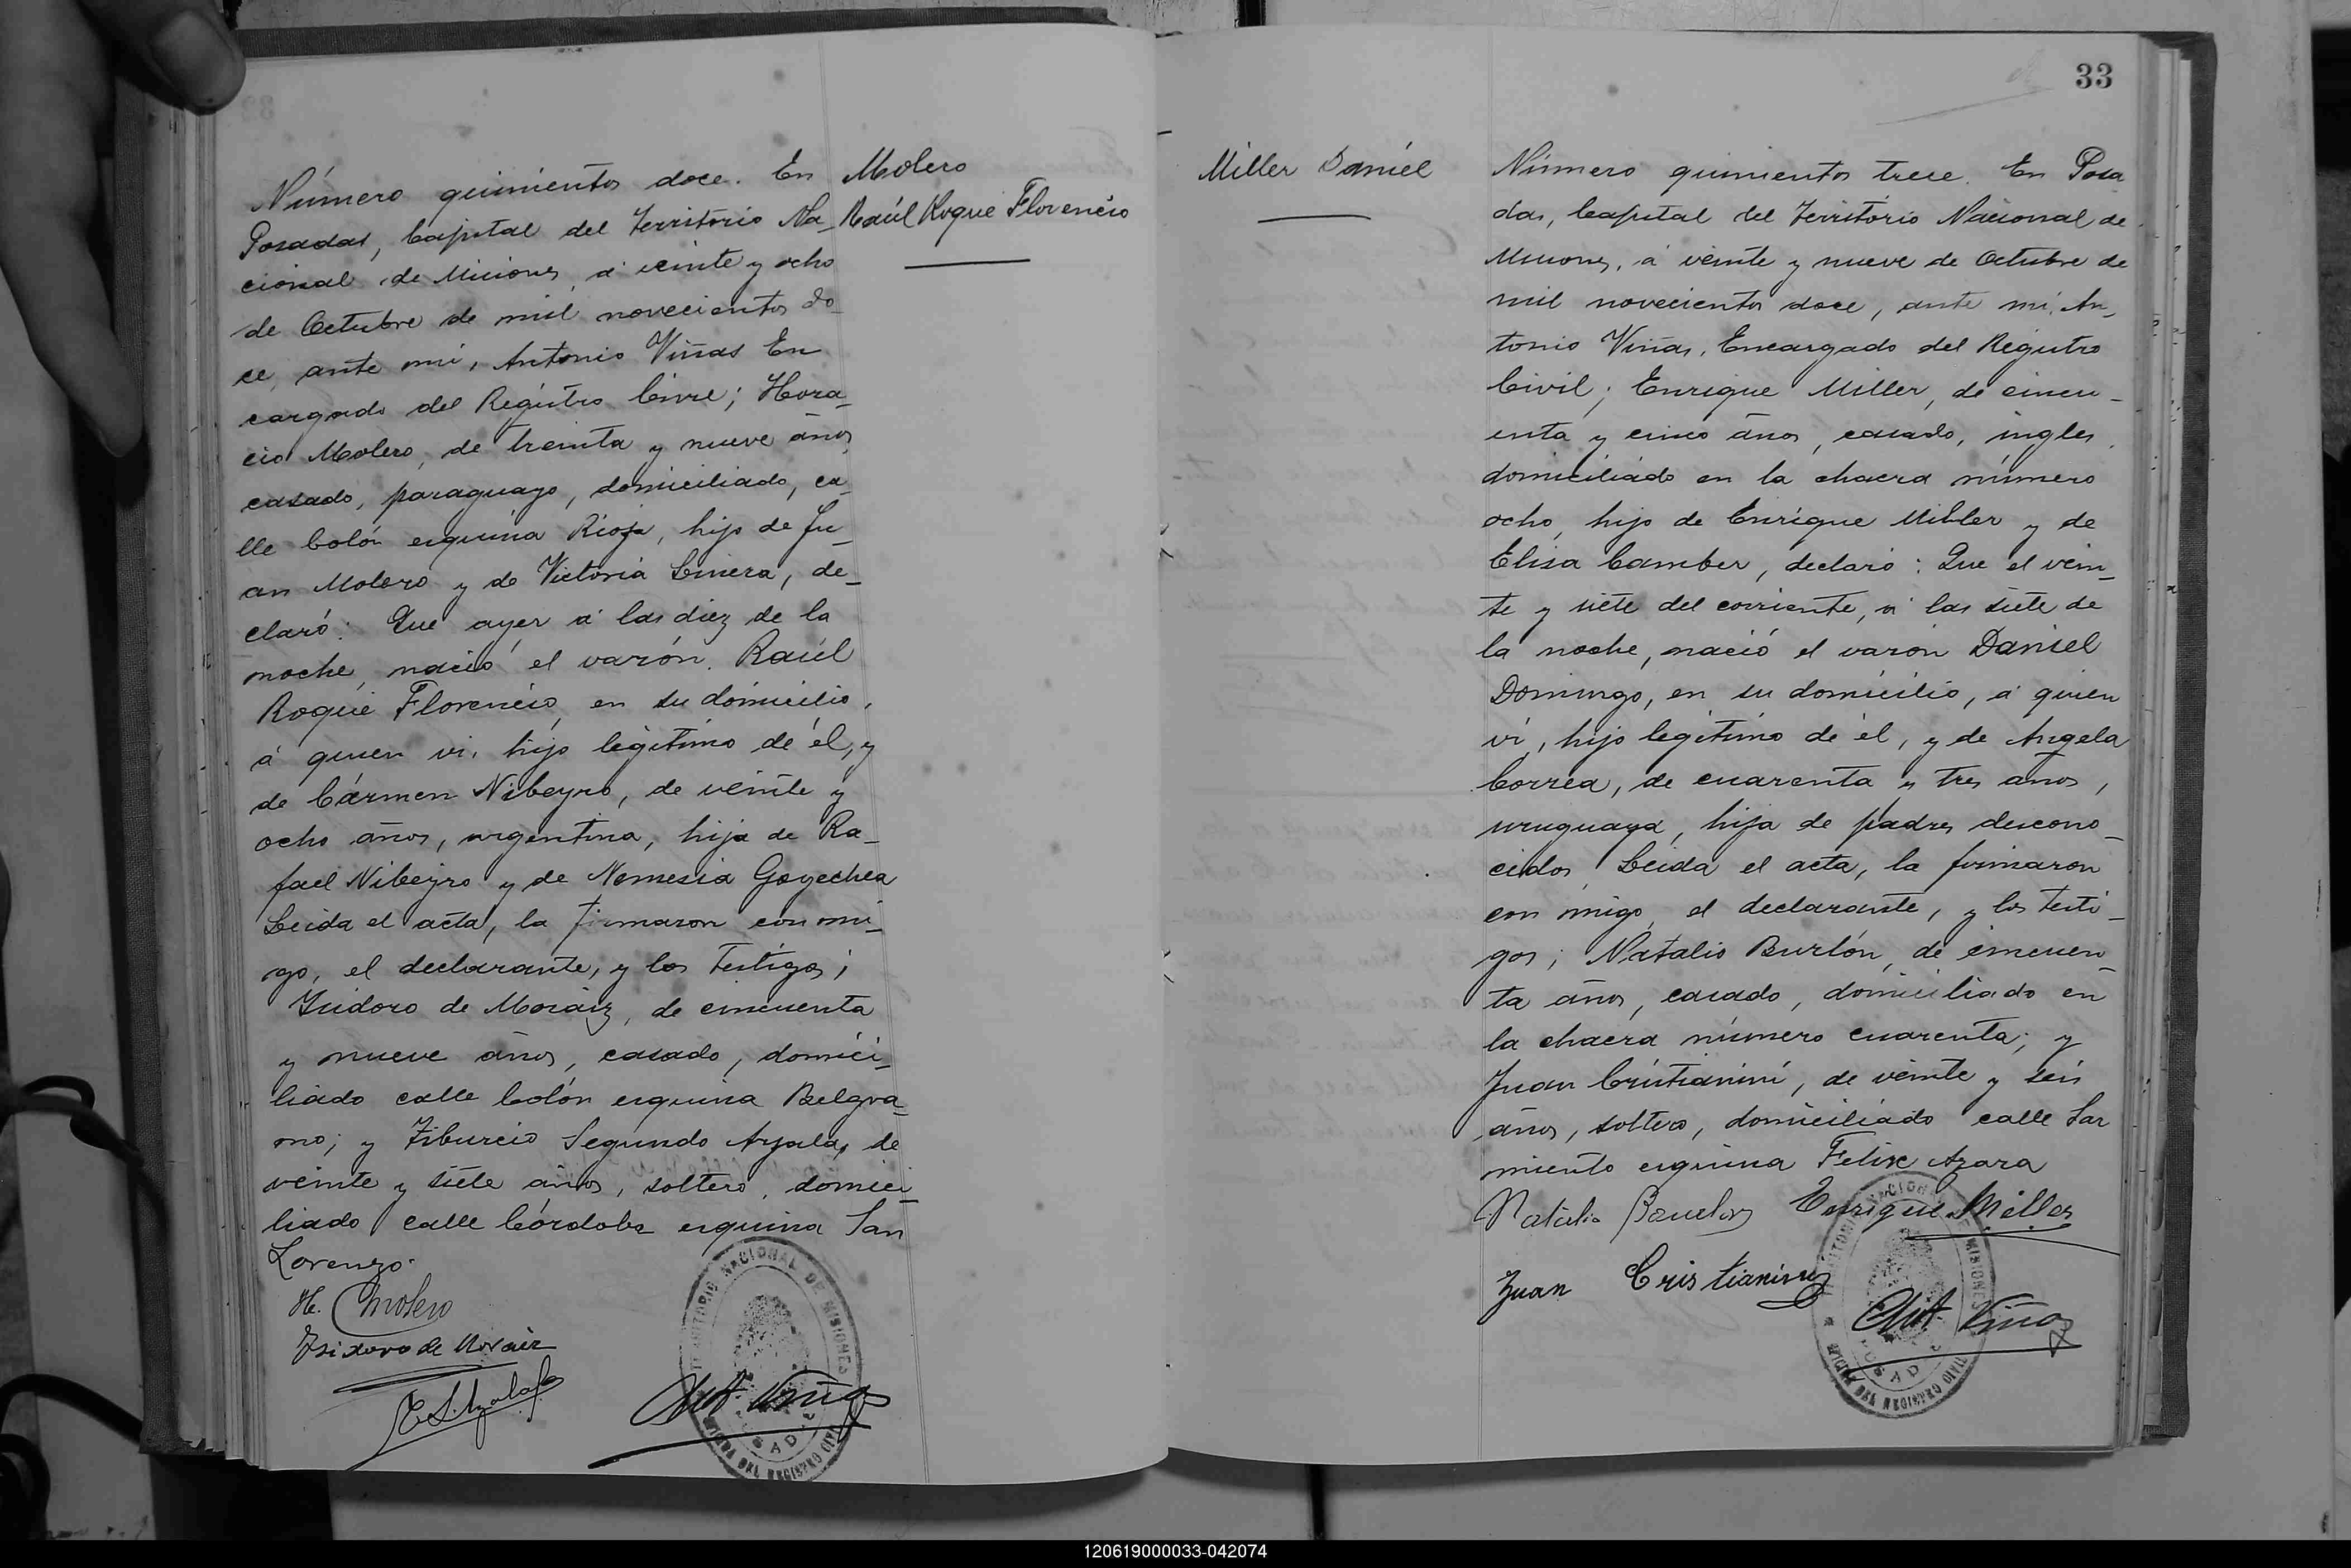 Número quinientos doce. En
Posadas, Capital del Territorio Na-
cional de Misiones, á veinte y ocho
de Octubre de mil novecientos do-
ce, ante mí, Antonio Viñas En
cargado del Registro Civil; Hora-
cio Molero, de treinta y nueve años,
casado, paraguayo, domiciliado, ca-
lle Colón esquina Rioja, hijo de Ju-
an Molero y de Victoria, de-
claró: Que ayer á las diez de la
noche, nació el varón. Raúl
Roque Florencio, en su domicilio,
á quien vi, hijo legítimo de él, y
de Cármen Nibeyro, de veinte y
ocho años, argentina, hija de Ra-
fael Nibeyro y de Nemesia Goyechea
Leida el acta, la firmaron con mi-
go, el declarante, y los testigos;
Isidoro de Moráiz, de cincuenta
y nueve años, casado, domici-
liado calle Colón esquina Belgra-
no; y Tiburcio Segundo Ayala, de
veinte y siete años, soltero, domici-
liado calle Córdoba esquina San
Lorenzo.
H. Molero
Isidoro de Moráiz
Ant Viñas
Molero
Raúl Roque Florencio
TERRITORIO NACIONAL DE MISIONES
OFICINA DEL REGISTRO CIVIL
33
Miller Daniel
Número quinientos trece. En Posa
das, Capital del Territorio Nacional de
Misiones, á veinte y nueve de Octubre de
mil novecientos doce, ante mí, An-
tonio Viñas, Encargado del Registro
Civil; Enrique Miller, de cincu-
enta y cinco años, casado, ingles,
domiciliado en la chacra número
ocho, hijo de Enrique Miller y de
Elisa Camber, declaró: Que el vein-
te y siete del corriente, á las siete de
la noche, nació el varón Daniel
Domingo, en su domicilio, á quien
vi, hijo legítimo de él, y de Angela
Correa, de cuarenta y tres años,
uruguaya, hija de padres descono-
cidos Leida el acta, la firmaron
con migo, el declarante, y los testi-
gos; Natalio Burlón, de cincuen-
ta años, casado, domiciliado en
la chacra número cuarenta; y
Juan Cristianini, de veinte y seis
años, soltero, domiciliado calle Sar
miento esquina Felix Azara
Natalio Enrique Miller
Juan Cristianini
Ant Viñas
TERRITORIO NACIONAL DE MISIONES
OFICINA DEL REGISTRO CIVIL
120619000033-042074